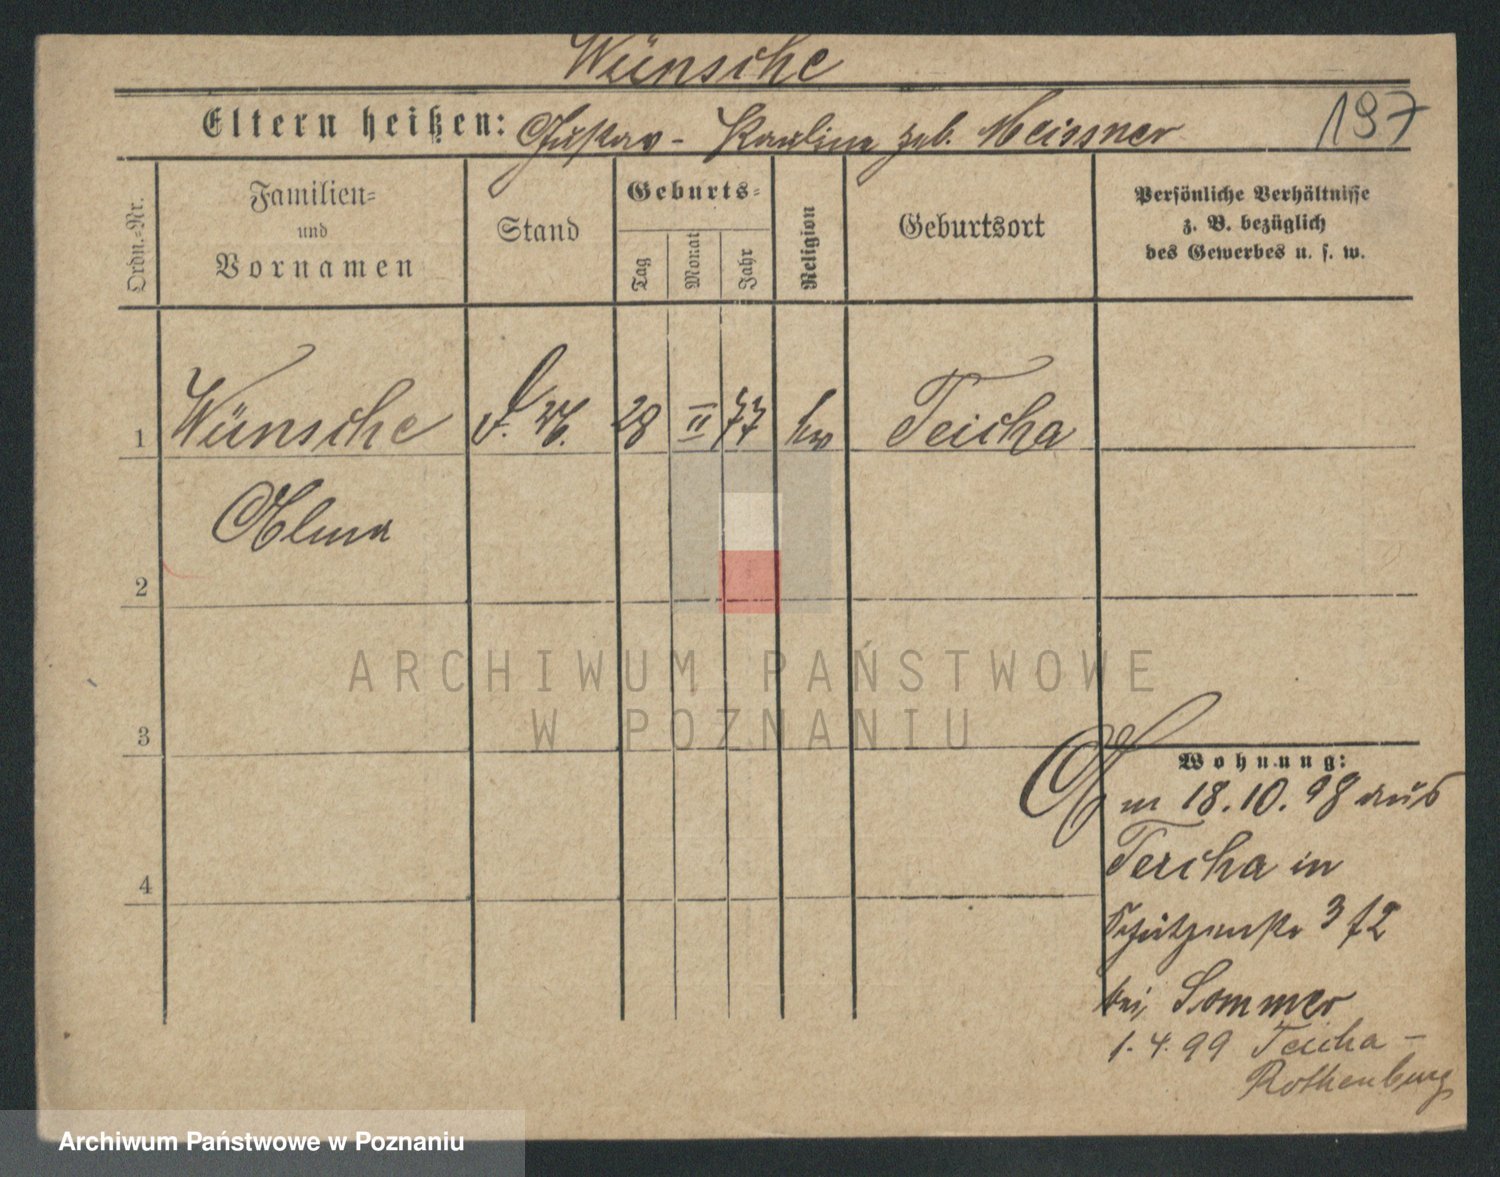 Wünsche
Eltern heißen: Gustav - Pauline geb. Meissner 197
Ordn.-Nr.
Familien-
und
Vornamen
Stand
Geburts-
Tag
Monat
Jahr
Religion
Geburtsort
Persönliche Verhältnisse
z. B. bezüglich
des Gewerbes u. s. w.
1 Wünsche 28 II 77 ev Teicha
Alma
2
3
4
ARCHIWUM PAŃSTWOWE
W POZNANIU
Wohnung:
Am 18.10.98 aus
Teicha in
Schützenstr 3 f2
bei Sommer
1.4.99 Teicha -
Rothenburg
Archiwum Państwowe w Poznaniu